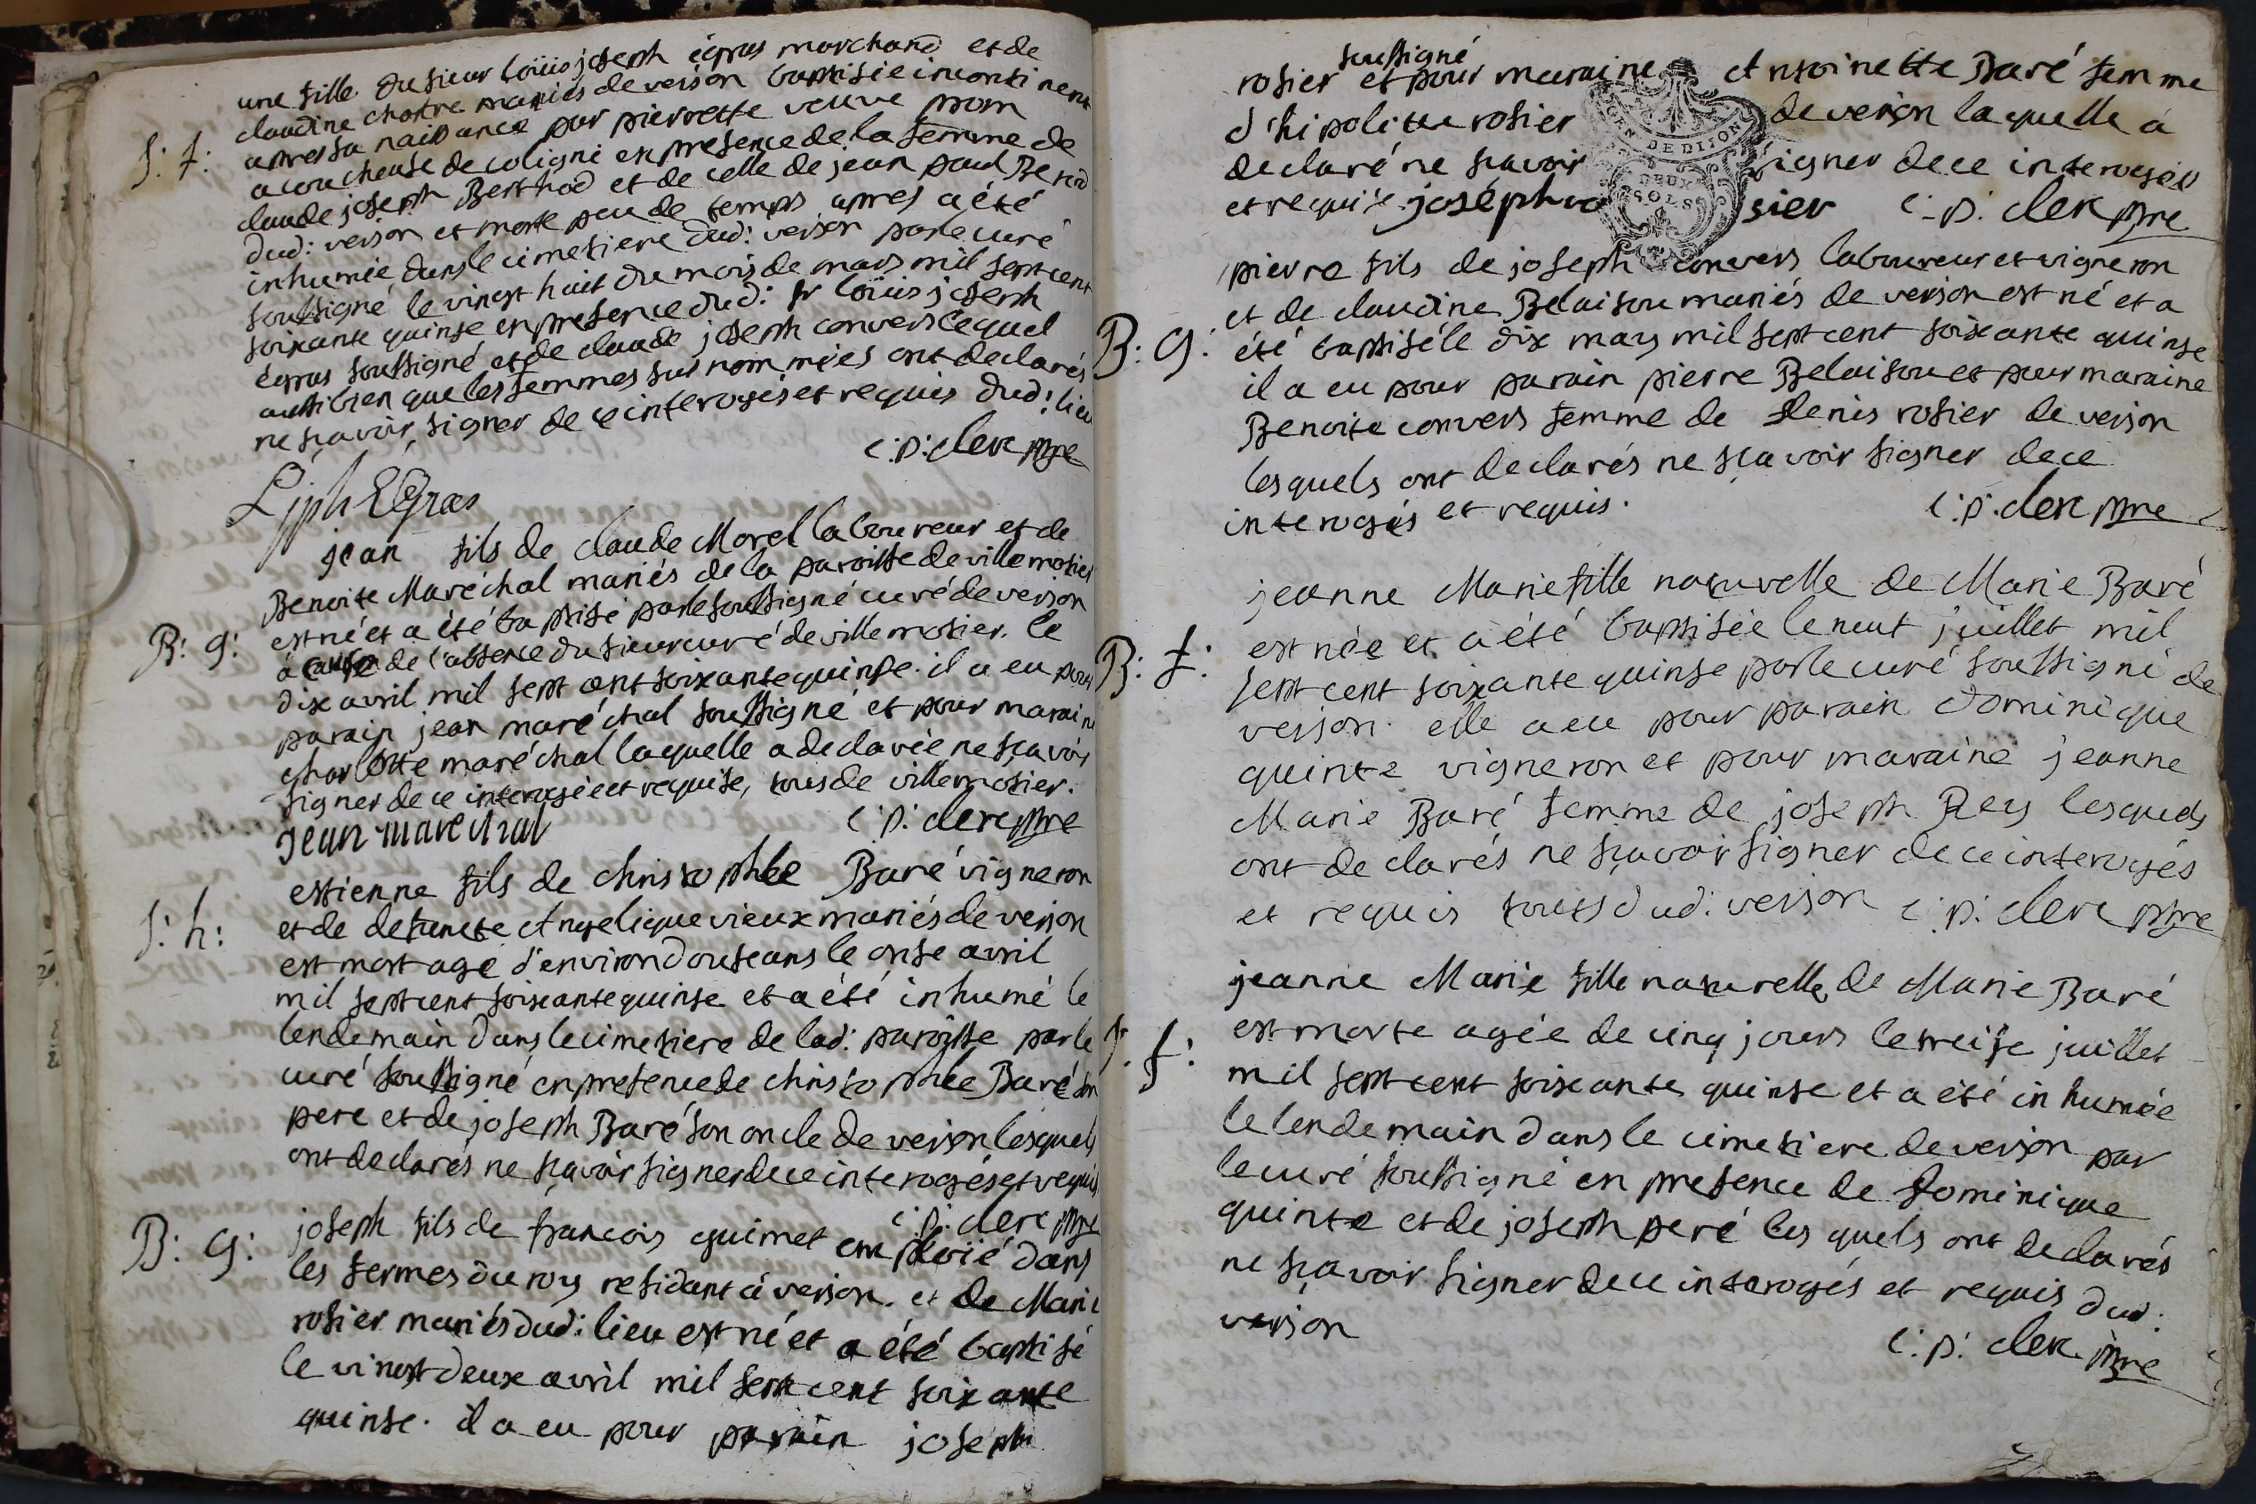 une fille du sieur loüis joseph égras marchand et de
claudine chastre mariés de verson baptisée incontinent
S: f: apres sa naissance par pierrette veuve prom
acoucheuse de coligni en presence de la femme de
claude joseph Berthod et de celle de jean paul Berod
dud: verson et morte peu de temps apres a été
inhumée dans le cimetiere dud: verson par le curé
soussigné le vingt huit du mois de mars mil sept cent
soixante quinse en presence dud: sr loüis joseph
égras soussigné et de claude joseph convers lequel
aussi bien que les femmes sus nommées ont declarés
ne sçavoir signer de ce interogés et requis dud: lieu
c: p: clerc ptre
L jph EGras
jean fils de claude Morel laboureur et de
Benoite Maréchal mariés de la paroisse de villemotier
est né et a été baptisé par le soussigné curé de verson
B: g: à cause de l'absence du sieur curé de villemotier. le
dix avril mil sept cent soixante quinse. il a eu pour
parain jean maréchal soussigné et pour maraine
charlotte maréchal laquelle a declarée ne sçavoir
signer de ce interogée et requise, tous de villemotier.
jean marechal c: p: clerc ptre
estienne fils de christophle Baré vigneron
S: h: et de defuncte Angelique vieux mariés de verson
est mort agé d'environ douse ans le onse avril
mil sept cent soixante quinse et a été inhumé le
lendemain dans le cimetiere de lad: paroisse par le
curé soussigné en presence de christophle Baré son
pere et de joseph Baré son oncle de verson lesquels
ont declarés ne sçavoir signer de ce interogés et requis
c: p: clerc ptre
B: g: joseph fils de francois guimet emploié dans
les fermes du roy residant à verson. et de Marie
rosier mariés dud: lieu est né et a été baptisé
le vingt deux avril mil sept cent soixante
quinse. il a eu pour parain joseph
soussigné
rosier et pour maraine Antoinette Baré femme
d'hipolitte rosier de verson laquelle a
declaré ne scavoir signer de ce interogée
et requise joseph rosier c: p: clerc ptre
GEN DE DIJON
DEUX SOLS
pierre fils de joseph convers laboureur et vigneron
et de claudine Belaisou mariés de verson est né et a
B: g: été baptisé le dix may mil sept cent soixante quinse
il a eu pour parain pierre Belaisou et pour maraine
Benoite convers femme de denis rosier de verson
lesquels ont declarés ne sçavoir signer de ce
interogés et requis. c: p: clerc ptre
jeanne Marie fille naturelle de Marie Baré
B: f: est née et a été baptisée le neuf juillet mil
sept cent soixante quinse par le curé soussigné de
verson. elle a eu pour parain dominique
quinte vigneron et pour maraine jeanne
Marie Baré femme de joseph Rey lesquels
ont declarés ne sçavoir signer de ce interogés
et requis touts dud: verson c: p: clerc ptre
jeanne Marie fille naturelle de Marie Baré
S: f: est morte agée de cinq jours le treise juillet
mil sept cent soixante quinse et a été inhumée
le lendemain dans le cimetiere de verson par
le curé soussigné en presence de dominique
quinte et de joseph peré lesquels ont declarés
ne sçavoir signer de ce interogés et requis dud:
verson c: p: clerc ptre